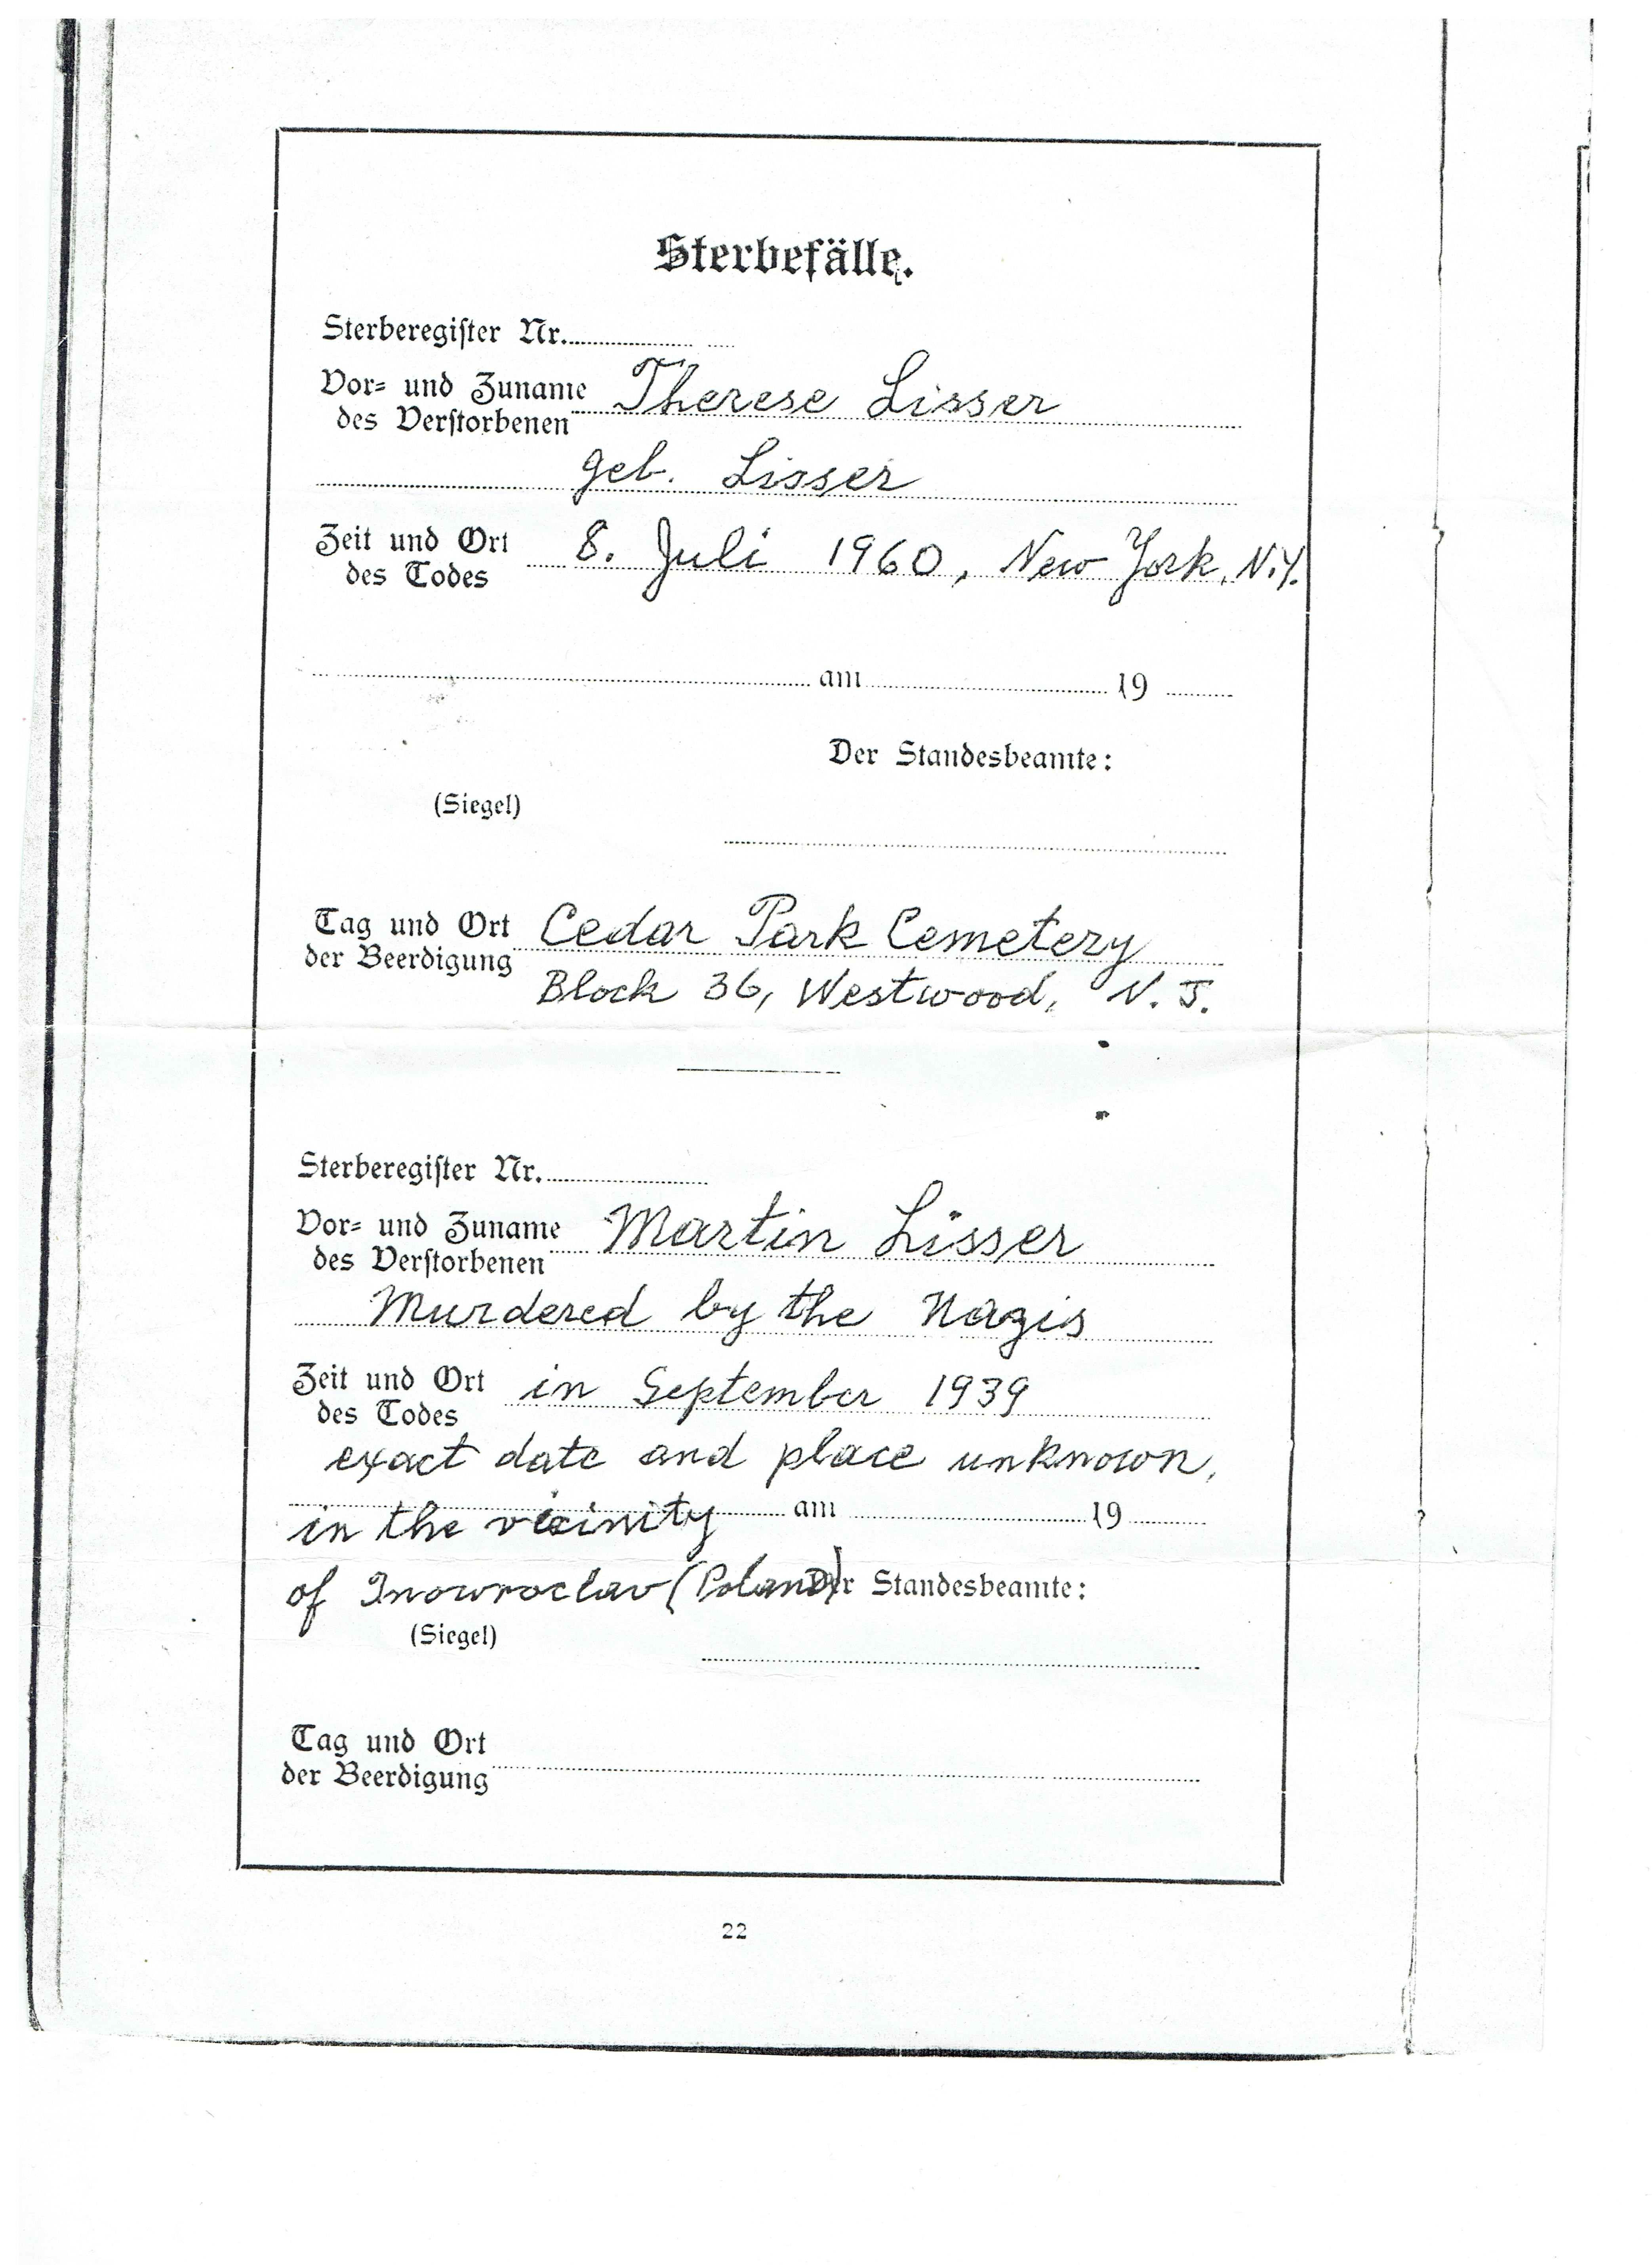 Sterbefälle.
Sterberegister Nr.
Vor- und Zuname des Verstorbenen Therese Lisser
geb. Lisser
Zeit und Ort des Todes 8. Juli 1960, New York, N.Y.
am 19
Der Standesbeamte:
(Siegel)
Tag und Ort der Beerdigung Cedar Park Cemetery
Block 36, Westwood, N. J.
Sterberegister Nr.
Vor- und Zuname des Verstorbenen Martin Lisser
Murdered by the Nazis
Zeit und Ort des Todes in September 1939
exact date and place unknown,
in the vicinity am 19
of Inowroclav (Poland) Der Standesbeamte:
(Siegel)
Tag und Ort der Beerdigung
22